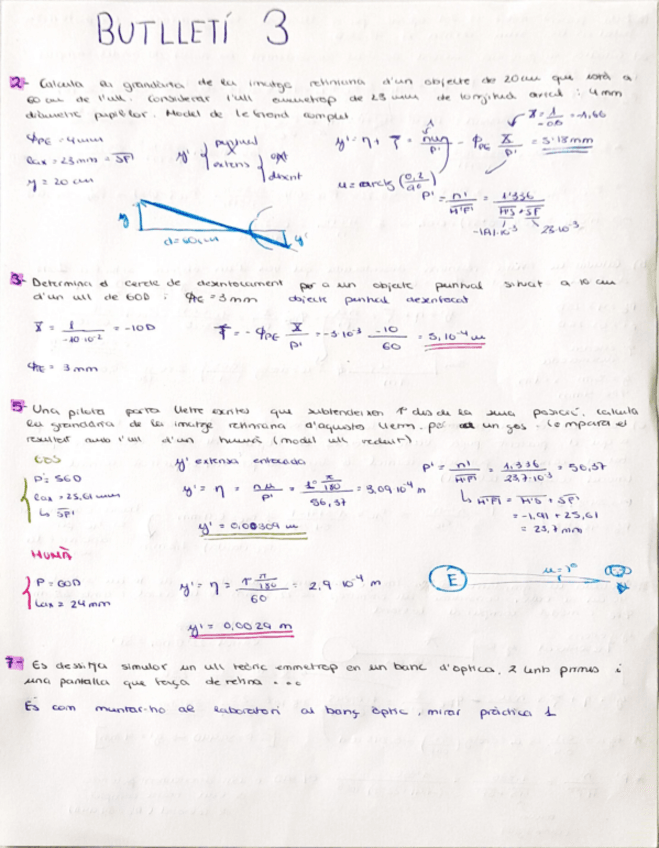 BUTLLETÍ 3
2- Calcula la grandària de la imatge retiniana d'un objecte de 20cm que està a
60 cm de l'ull. Considerar l'ull emmetrop de 23 mm de longitud axial i 4mm
diàmetre pupil·lar. Model de Le Grand complet
ϕPE = 4mm
lax = 23mm = SP'
y = 20 cm
y' { puntual
extens { enf
desenf
y' = η + T = nu/P' - ϕPE X/P' = 5'13mm
X = 1/-0.6 = -1,66
u = arctg (0,2/0.6)
P' = n'/H'F' = 1'336/H'S + SF'
-1,91·10⁻³ 23·10⁻³
y
d=60cm
y'
3- Determina el cercle de desenfocament per a un objecte puntual situat a 10 cm
d'un ull de 60D i ϕPE = 3mm objecte puntual desenfocat
X = 1/-10·10⁻² = -10D
T = - ϕPE X/P' = -3·10⁻³ -10/60 = 5·10⁻⁴ m
ϕPE = 3mm
5- Una pilota porta lletres escrites que subtendeixen 1º des de la seua posició, calcula
la grandària de la imatge retiniana d'aquesta lletra per a un gos. Compara el
resultat amb l'ull d'un humà (model ull reduït)
GOS
P = 56D
lax = 25,61 mm
↳ SP'
y' extensa enfocada
y' = η = nu/P' = 1º π/180 / 56,37 = 3,09·10⁻⁴ m
y' = 0,00309 m
P' = n'/H'F' = 1,336/23,7·10⁻³ = 56,37
↳ H'F' = H'S + SF'
= -1,91 + 25,61
= 23,7 mm
HUMÀ
P = 60D
lax = 24mm
y' = η = 1 π/180 / 60 = 2,9·10⁻⁴ m
y' = 0,0029 m
E
u = 1º
7- Es desitja simular un ull teòric emmetrop en un banc d'òptica, 2 lents primes i
una pantalla que faça de retina ...
És com muntar-ho al laboratori al banc òptic, mirar pràctica 1